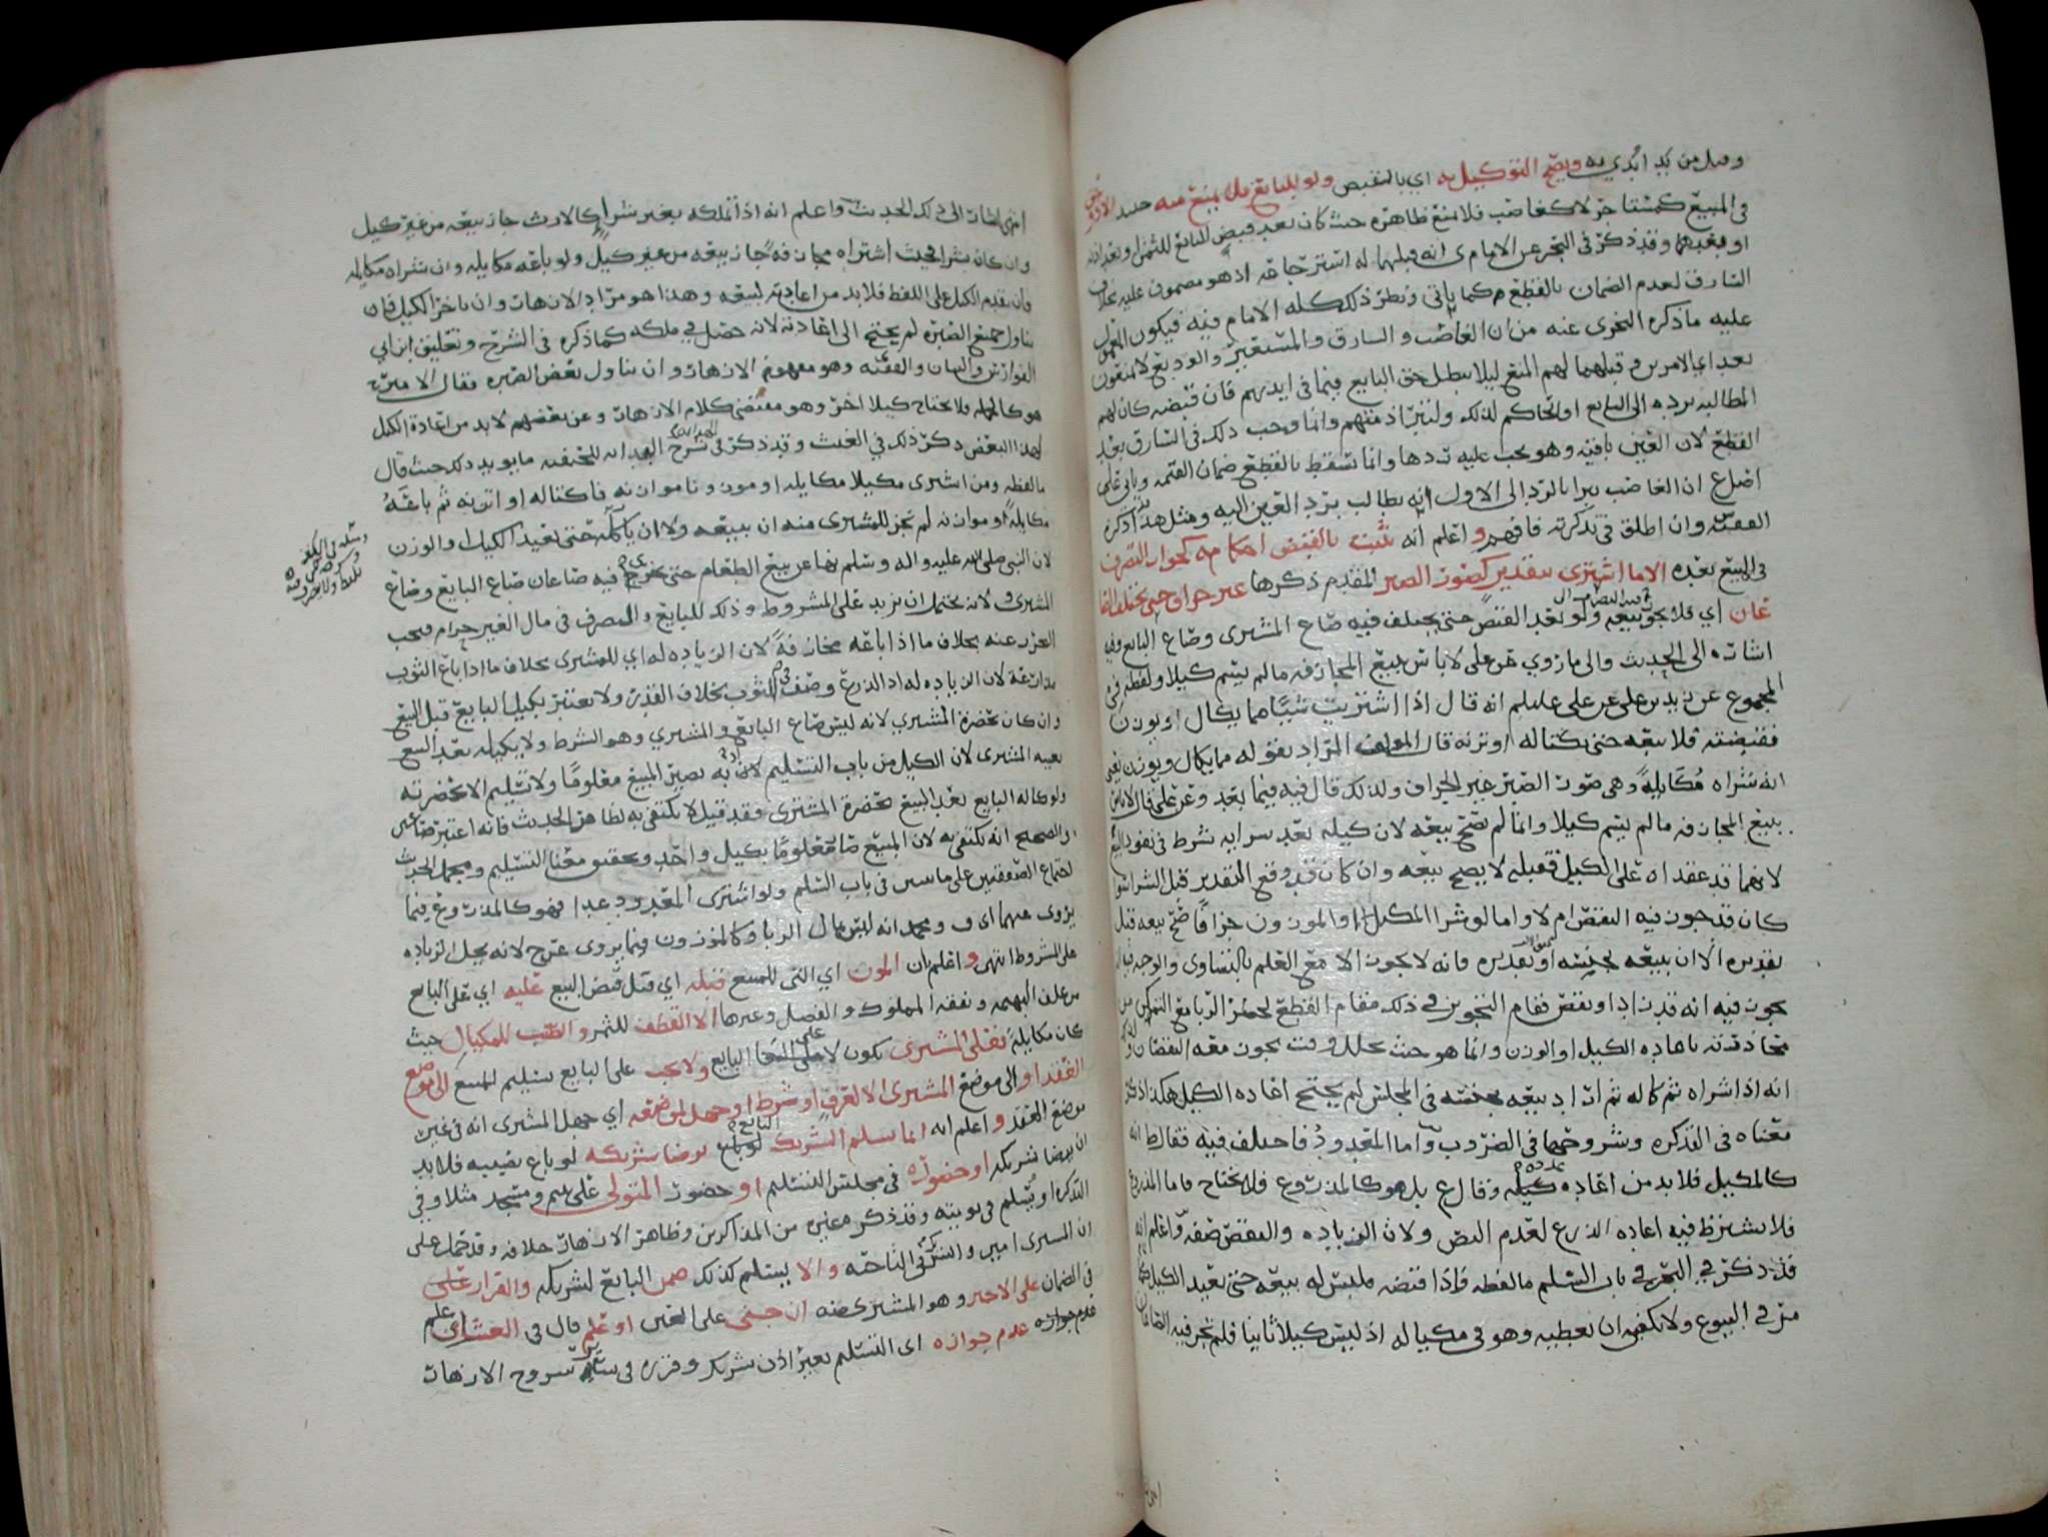 ويصح التوكيل به اي بالتقبيض ولو للبايع
في المبيع كمستاجر لا كغاصب فلا منع ظاهره حيث كان بعد قبض البايع للثمن او بعد اذنه
او بعدهما وقد ذكر في البحر عن الامام ى انه قبلهما له استرجاعه اذ هو مضمون عليه بخلاف
السارق لعدم الضمان بالقطع كما ياتي ونظر ذلك كله الامام فيه فيكون المعمول
عليه ما ذكره النجرى عنه من ان الغاصب والسارق والمستعير والوديع لا يمنعون
بعد اي الامرين وقبلهما لهم المنع ليلا يبطل حق البايع فيما في ايديهم فان قبضه كان لهم
المطالبه برده الى البايع او الحاكم لذلك ولتبرا ذمتهم وانما وجب ذلك في السارق بعد
القطع لان العين باقيه وهو يجب عليه ردها وانما تسقط بالقطع ضمان القيمه وياتي على
اصل ع ان الغاصب يبرا بالرد الى الاول انه يطالب برد العين اليه ومثل هذا ذكره
الفقيه س وان اطلق في تذكرته فافهم واعلم انه ثبت بالقبض احكامه كجواز التصرف
في المبيع بعده الا ما اشترى بتقدير كصور الصبر المقدم ذكرها غير جزاف حتى يختلف الصا
عان اي فلا يجوز بيعه ولو بعد القبض حتى يختلف فيه صاع المشترى وصاع البايع وفيه
اشاره الى الحديث والى ما روي عن على لا باس ببيع المجازفه ما لم يسم كيلا ولفظه في
المجموع عن زيد بن على عن على عليلم انه قال اذا اشتريت شيًا مما يكال او يوزن
فقبضته فلا تبعه حتى تكتاله او تزنه قال المولف المراد بقوله مما يكال ويوزن يعني
انه شراه مكايلةً وهي صور الصبر غير الجزاف ولذلك قال فيه فيما بعد وعن على قال لا باس
ببيع المجازفه ما لم يسم كيلا وانما لم يصح بيعه لان كيله بعد شرايه شرط في نفوذ البيع
لانهما قد عقداه على الكيل فقبله لا يصح بيعه وان كان قد وقع التقدير قبل الشرا سوا
كان قد جوز فيه النقص ام لا واما لو شرا المكيل او الموزون جزافًا صح بيعه قبل
تقديره الا ان يبيعه بجنسه او بتقديره فانه لا يجوز الا مع العلم بالتساوى
يجوز فيه انه قد زاد او نقص فقام التجويز في ذلك مقام القطع لحظر الربا مع التمكن من
انه اذا شراه ثم كاله ثم اراد بيعه بجنسه في المجلس لم يحتج اعاده الكيل هكذا ذكر
معناه في التذكره وشروحها في الضروب واما المعدود فاختلف فيه فقال ط انه
كالمكيل فلا بد من اعاده كيله وقال ع بل هو كالمذروع فلا يحتاج فاما المذروع
فلا يشترط فيه اعاده الذرع لعدم النص ولان الزياده والنقص صفه واعلم انه
قد ذكر في البحر في باب السلم ما لفظه فاذا قبضه فليس له بيعه حتى يعيد الكيل كما
مر في البيوع ولا يكفي ان يعطيه وهو في مكياله اذ ليس كيلا ثانيا فلم تجر فيه الصاعان
اشار الى ذلك الحديث واعلم انه اذا تملكه بغير شراء كالارث جاز بيعه من غير كيل
وان كان بشرا بحيث اشتراه مجازفةً جاز بيعه من غير كيل ولو باعه مكايله وان شراه مكايله
فان تقدم الكيل على اللفظ فلا بد من اعادته لبيعه وهذا هو مراد الازهار وان تاخر الكيل فان
تناول جميع الصبره لم يحتج الى اعادته لانه حصل في ملكه كما ذكره في الشرح وتعليق ابن ابي
الفوارس والبيان والفقيه وهو مفهوم الازهار وان تناول بعض الصبره فقال الامير
هو كالجمله فلا يحتاج كيلا اخر وهو مقتضى كلام الازهار وعن بعضهم لا بد من اعادة الكيل
لهذا البعض ذكر ذلك في الغيث وقد ذكر في شرح الهدايه للحنفيه ما يويد ذلك حيث قال
ما لفظه ومن اشترى مكيلا مكايله او موزونا موازنه فاكتاله او اتزنه ثم باعه
مكايلةً او موازنه لم تجز للمشترى منه ان يبيعه ولا ان ياكله حتى يعيد الكيل والوزن
لان النبي صلى الله عليه واله وسلم نها عن بيع الطعام حتى يجرى فيه صاعان صاع البايع وصاع
المشترى ولانه يحتمل ان يزيد على المشروط وذلك للبايع والتصرف في مال الغير حرام فيجب
التحرز عنه بخلاف ما اذا باعه مجازفةً لان الزياده له اي للمشترى بخلاف ما اذا باع الثوب
مذارعة لان الزياده له اذ الذرع وصف في الثوب بخلاف القدر ولا يعتبر بكيل البايع قبل البيع
وان كان بحضرة المشتري لانه ليس صاع البايع والمشتري وهو الشرط ولا بكيله بعد البيع
بغيبه المشترى لان الكيل من باب التسليم لان به يصير المبيع معلومًا ولا تسليم الا بحضرته
ولو كاله البايع بعد البيع بحضرة المشترى فقد قيل لا يكتفى به لظاهر الحديث فانه اعتبر صاعين
والصحيح انه يكتفى به لان المبيع صار معلومًا بكيل واحد وتحقق معنا التسليم ومحمل الحديث
اجتماع الصفقتين على ما سبق في باب السلم ولو اشترى المعدود عدا فهو كالمذروع فيما
يروى عنهما اى ف ومحمد انه ليس بمال الربا وكالموزون فيما يروى عن ح لانه يحل الزياده
على المشروط انتهى واعلم ان المون اي التى للمبيع قبله اي قبل قبض المبيع عليه اي على البايع
من علف البهيمه ونفقه المملوك والفصل وغيرها الا القطف للثمر والصب للمكيال حيث
كان مكايلة فعلى المشترى تكون لا على البايع ولا يجب على البايع تسليم المبيع الى موضع
العقد او الى موضع المشترى الا لعرف او شرط او جهل موضعه اي جهل المشترى انه في غير
موضع العقد واعلم انه انما يسلم الشريك لو باع برضا شريكه لو باع نصيبه فلا بد
ان يرضا شريكه او حضوره في مجلس التسليم او حضور المتولى على يتيم ومسجد مثلا وفي
التذكره او يسلم في نوبته وقد ذكر معنيه من المذاكرين وظاهر الازهار خلافه وقد حمل على
والا يسلم كذلك ضمن البايع لشريكه والقرار على
في الضمان على الاخر وهو المشترى منه ان جنى على العين او علم قال في الغيث اي علم
عدم جوازه عدم جوازه اى التسليم بغير اذن شريكه وقرره في شروح الازهار